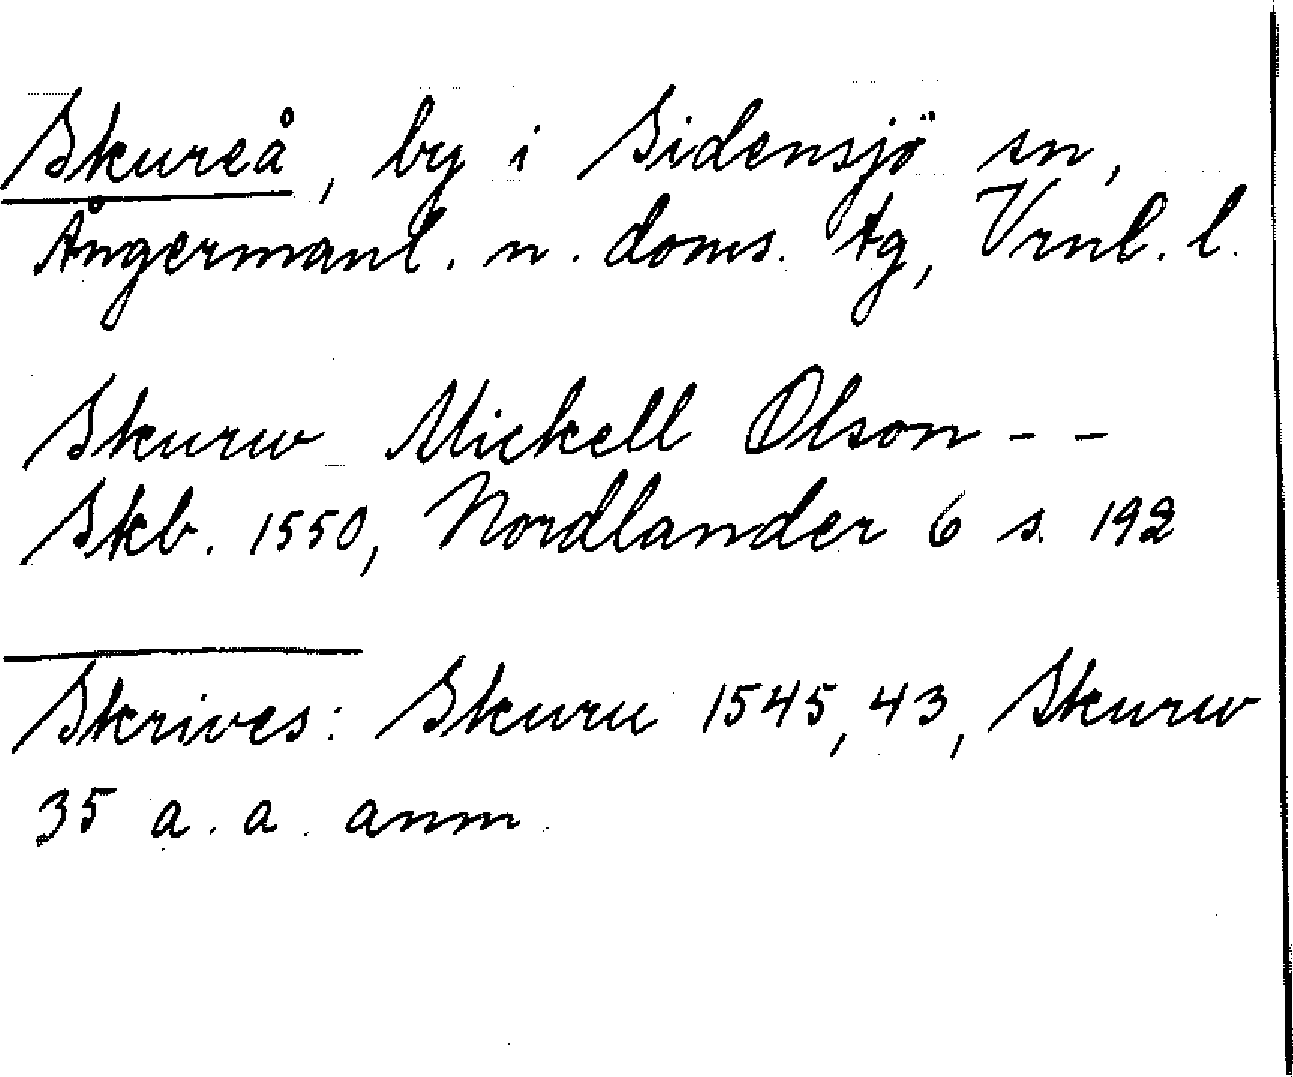 Skureå, by i Sidensjö sn,
Ångermanl. n. doms. tg, Vrnl. l.
Skurw Mickell Olson - -
Skb. 1550, Nordlander 6 s. 192
Skrives: Skuru 1545, 43, Skurw
35 a. a. anm.